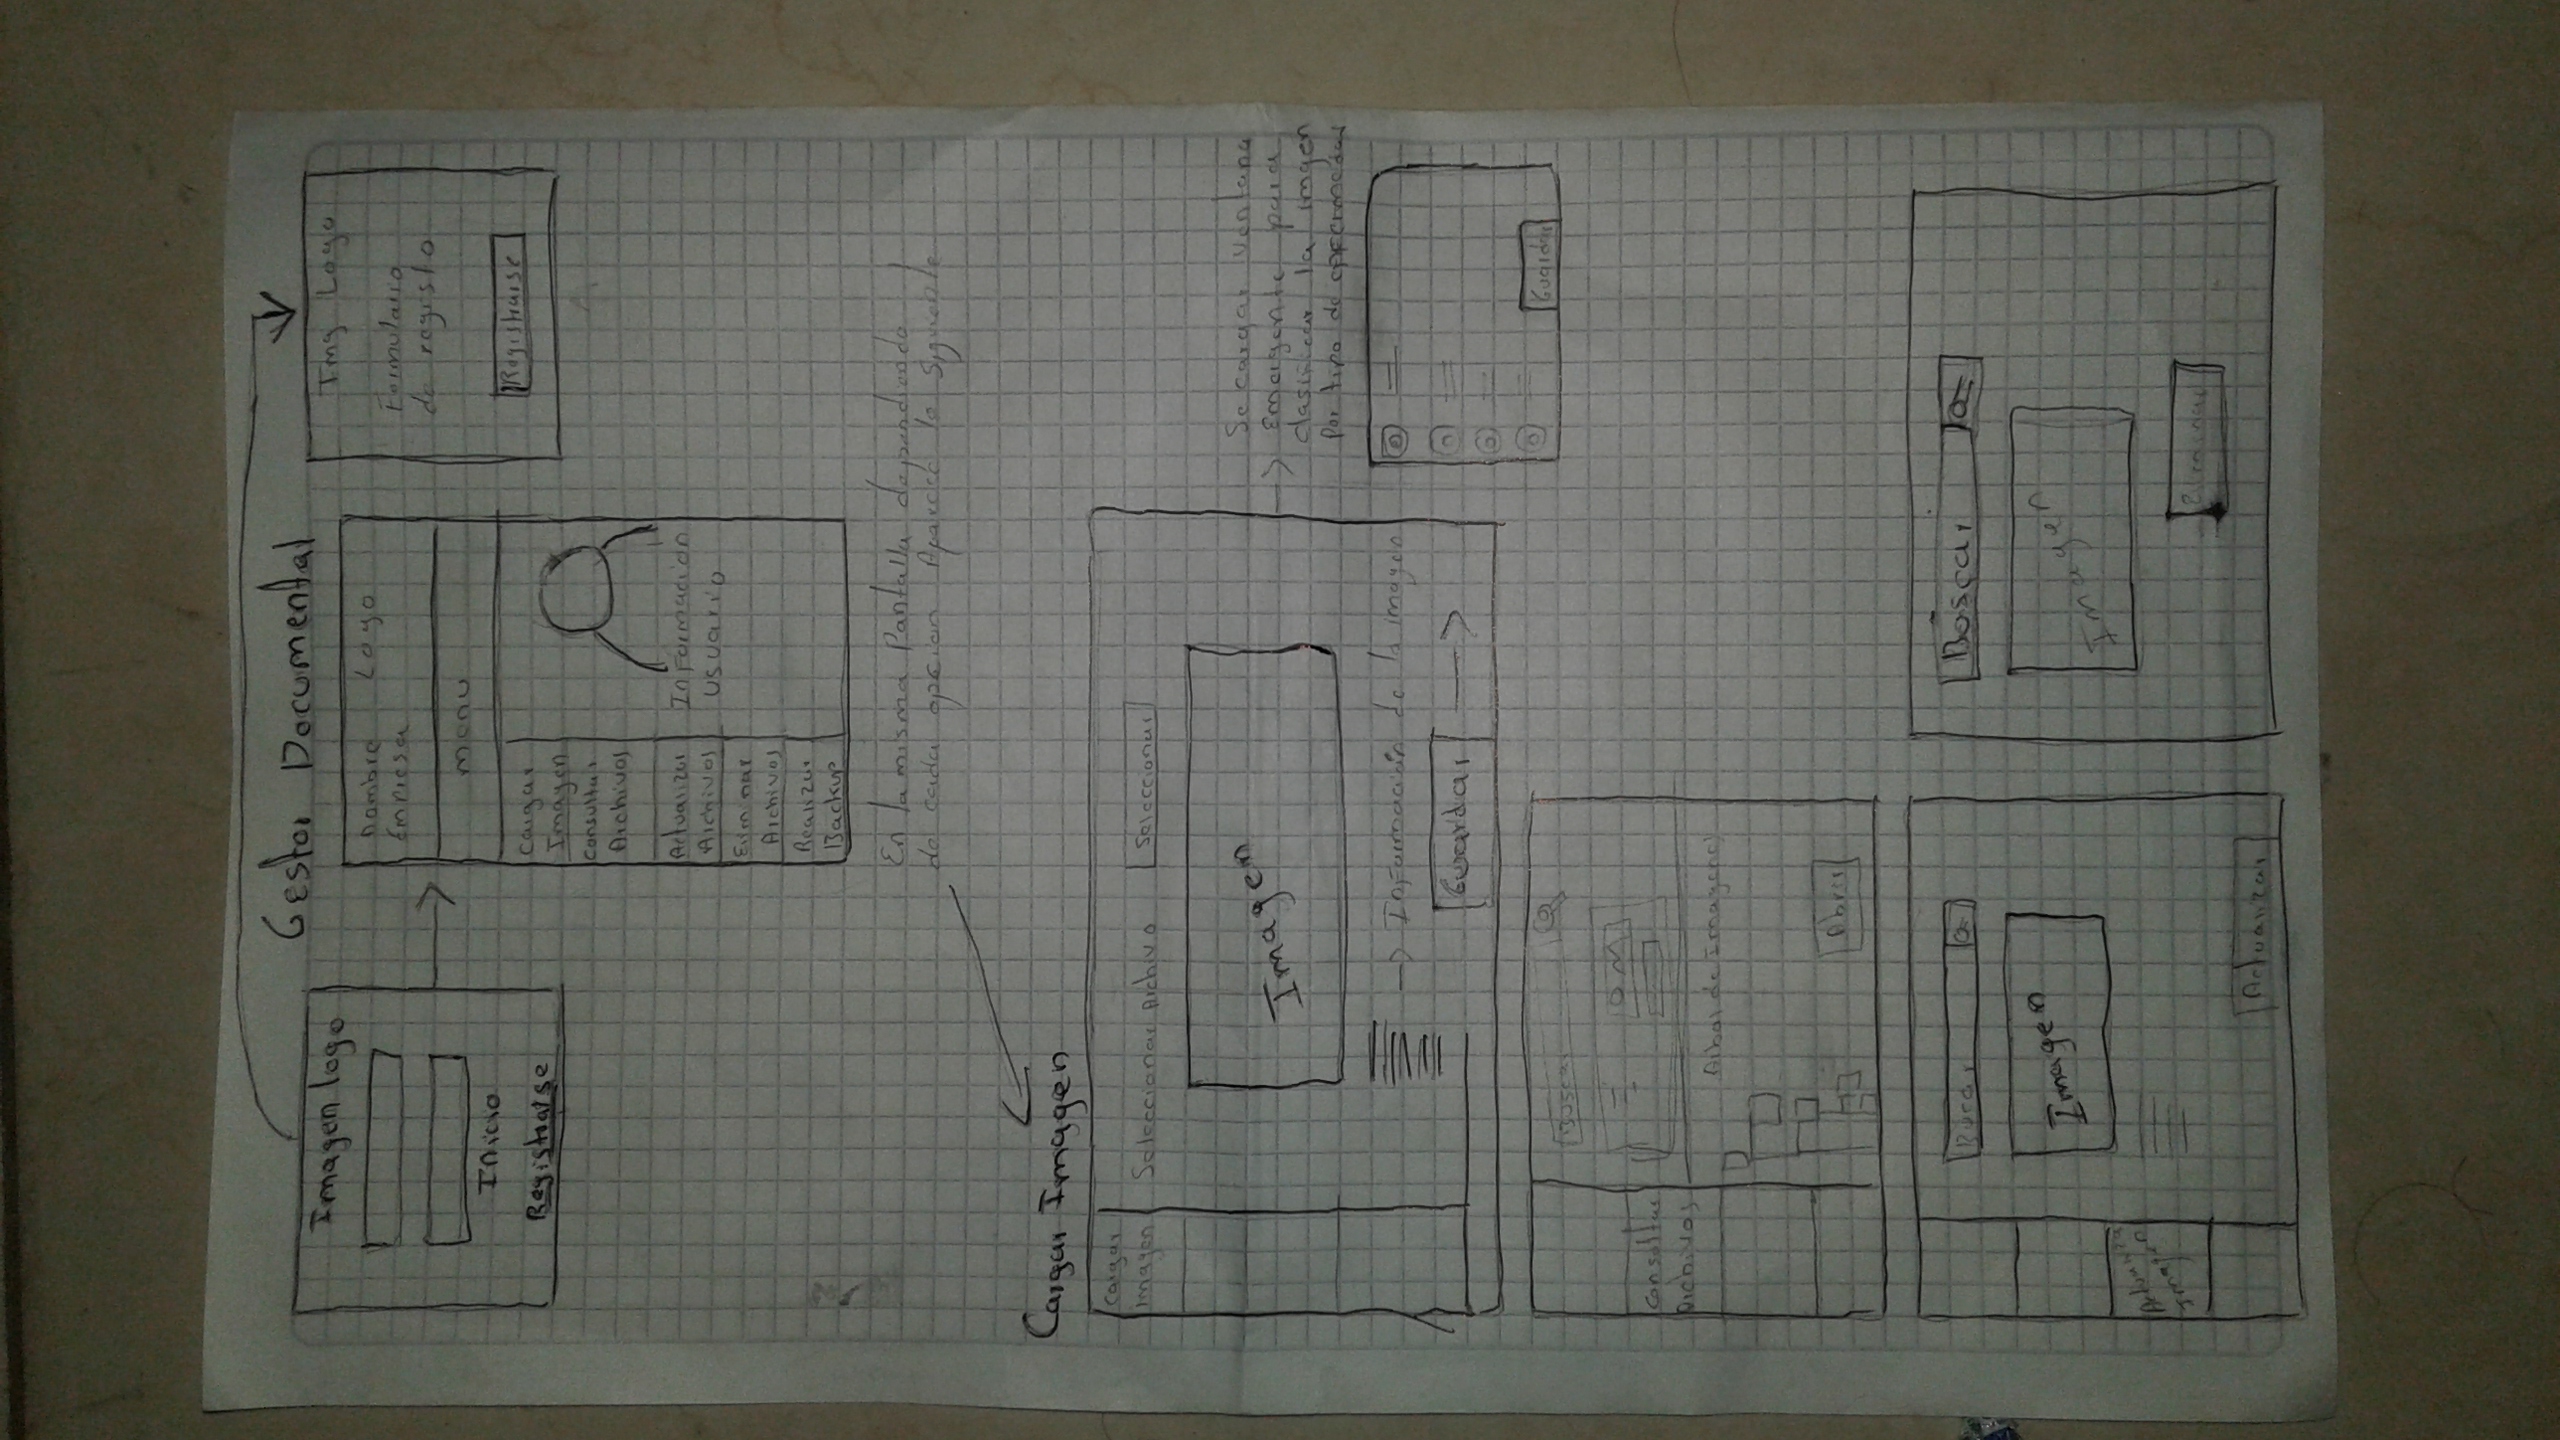 Gestor Documental
Imagen logo
Inicio
Registrarse
nombre Logo
Empresa
menu
Cargar
Imagen
Consultar
Archivos
Actualizar
Archivos
Eliminar
Archivos
Realizar
Backup
Información
usuario
Img Logo
Formulario
de registo
Registrarse
En la misma Pantalla dependiendo
de cada opcion Aparece lo Siguiente
Cargar Imagen
Cargar
imagen
Seleccionar Archivo Seleccionar
Imagen
Información de la imagen
Guardar
Se cargar ventana
Emergente para
clasificar la imgen
Por tipo de
Guardar
Buscar
Consultar
Archivos
Arbol de Imagenes
Abrir
Buscar
Imagen
Actualizar
Imagen
Actualizar
Buscar
Imagen
Eliminar